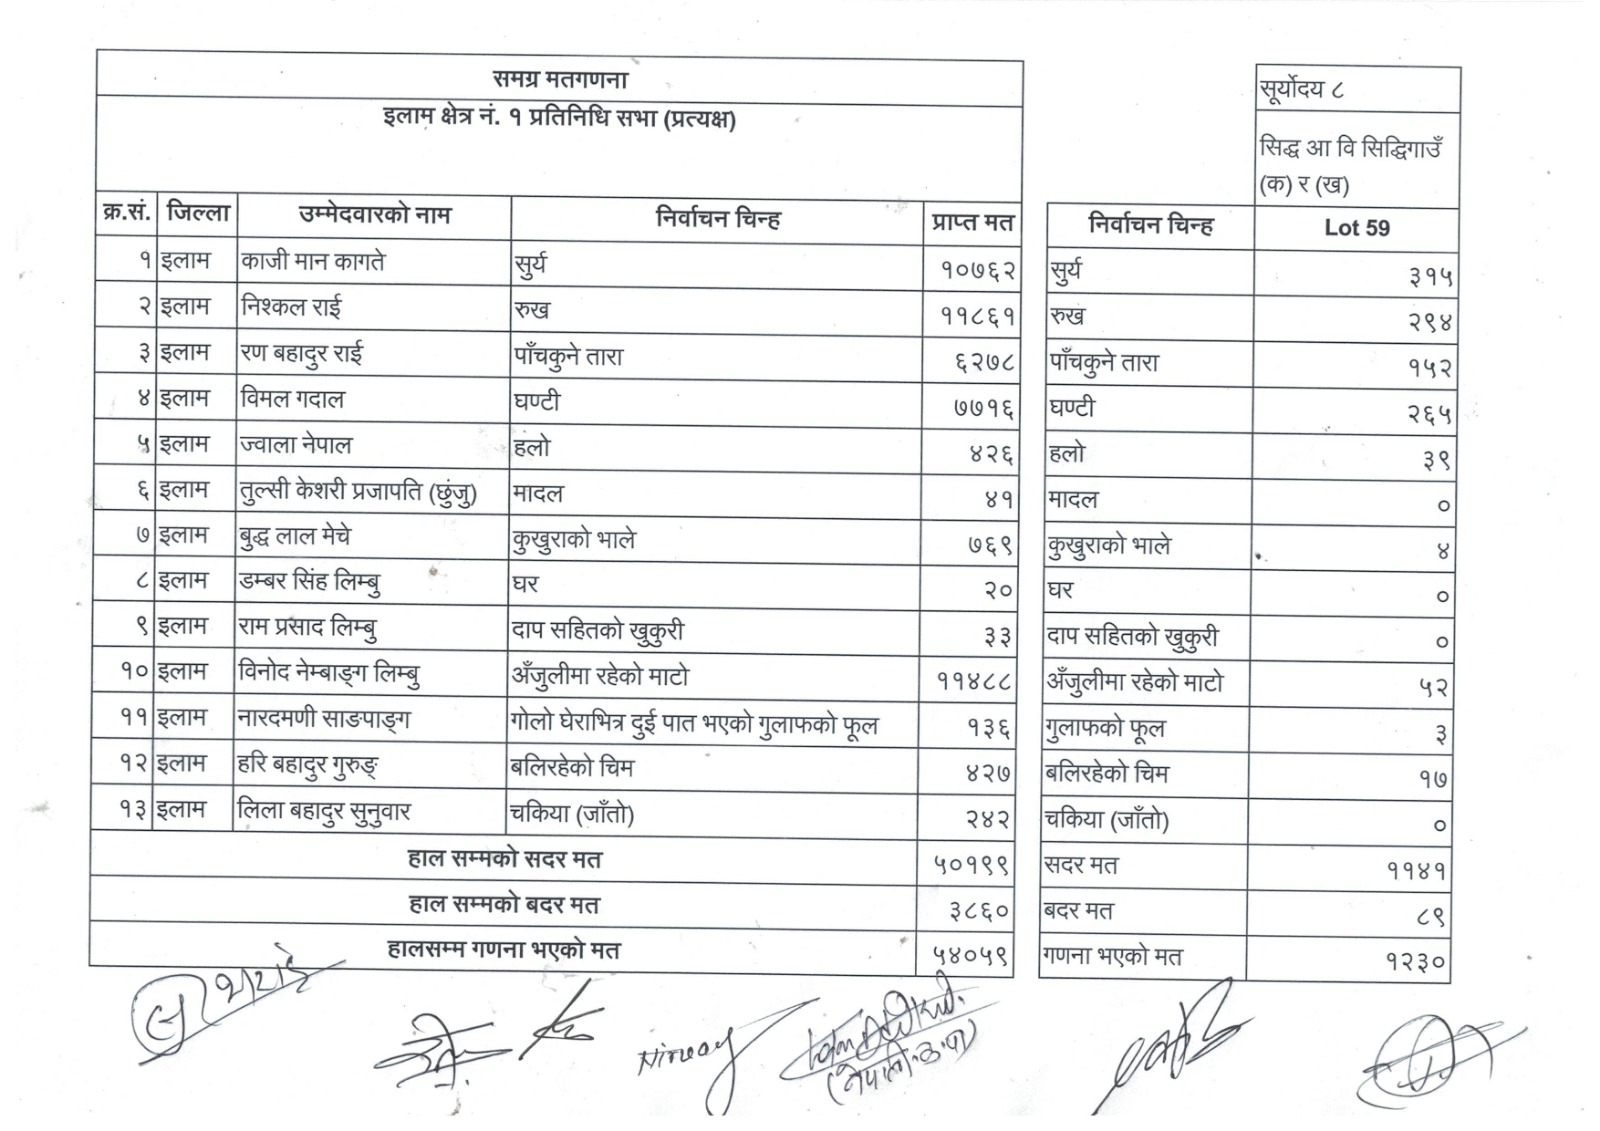 समग्र मतगणना
इलाम क्षेत्र नं. १ प्रतिनिधि सभा (प्रत्यक्ष)
क्र.सं. जिल्ला उम्मेदवारको नाम निर्वाचन चिन्ह प्राप्त मत
१ इलाम काजी मान कागते सुर्य १०७६२
२ इलाम निश्कल राई रुख ११८६१
३ इलाम रण बहादुर राई पाँचकुने तारा ६२७८
४ इलाम विमल गदाल घण्टी ७७१६
५ इलाम ज्वाला नेपाल हलो ४२६
६ इलाम तुल्सी केशरी प्रजापति (छुंजु) मादल ४१
७ इलाम बुद्ध लाल मेचे कुखुराको भाले ७६९
८ इलाम डम्बर सिंह लिम्बु घर २०
९ इलाम राम प्रसाद लिम्बु दाप सहितको खुकुरी ३३
१० इलाम विनोद नेम्बाङ्ग लिम्बु अँजुलीमा रहेको माटो ११४८८
११ इलाम नारदमणी साङपाङ्ग गोलो घेराभित्र दुई पात भएको गुलाफको फूल १३६
१२ इलाम हरि बहादुर गुरुङ् बलिरहेको चिम ४२७
१३ इलाम लिला बहादुर सुनुवार चकिया (जाँतो) २४२
हाल सम्मको सदर मत ५०१९९
हाल सम्मको बदर मत ३८६०
हालसम्म गणना भएको मत ५४०५९
सूर्योदय ८
सिद्ध आ वि सिद्धिगाउँ
(क) र (ख)
निर्वाचन चिन्ह Lot 59
सुर्य ३१५
रुख २९४
पाँचकुने तारा १५२
घण्टी २६५
हलो ३९
मादल ०
कुखुराको भाले ४
घर ०
दाप सहितको खुकुरी ०
अँजुलीमा रहेको माटो ५२
गुलाफको फूल ३
बलिरहेको चिम १७
चकिया (जाँतो) ०
सदर मत ११४१
बदर मत ८९
गणना भएको मत १२३०